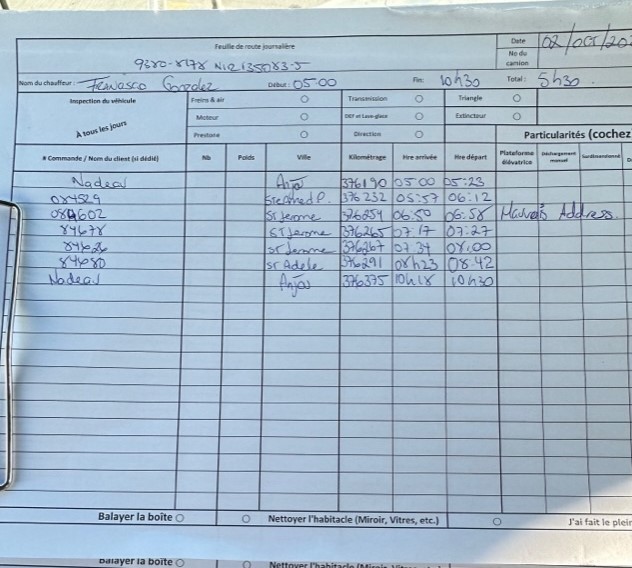 Feuille de route journalière
Date 02/oct/202
9380-8178 N12135083-5
No du camion
Nom du chauffeur: Francisco Gonzalez Début: 05-00 Fin: 10h30 Total: 5h30
Inspection du véhicule Freins & air Transmission Triangle
Moteur DEF et Lave-glace Extincteur
À tous les jours Prestone Direction Particularités (cochez
# Commande / Nom du client (si dédié) Nb Poids Ville Kilométrage Hre arrivée Hre départ Plateforme élévatrice Déchargement manuel
Nadeau Anjou 376190 05:00 05:23
084529 376232 05:57 06:12
084602 St Jerome 376259 06:50 06:58 Mauvais Address
84678 ST Jerome 376265 07:17 07:27
84626 St Jerome 376267 07:34 08:00
84680 ST Adele 376291 08h23 08:42
Nadeau Anjou 376375 10h18 10h30
Balayer la boîte Nettoyer l'habitacle (Miroir, Vitres, etc.) J'ai fait le plein
Balayer la boîte Nettoyer l'habitacle (Miroir,